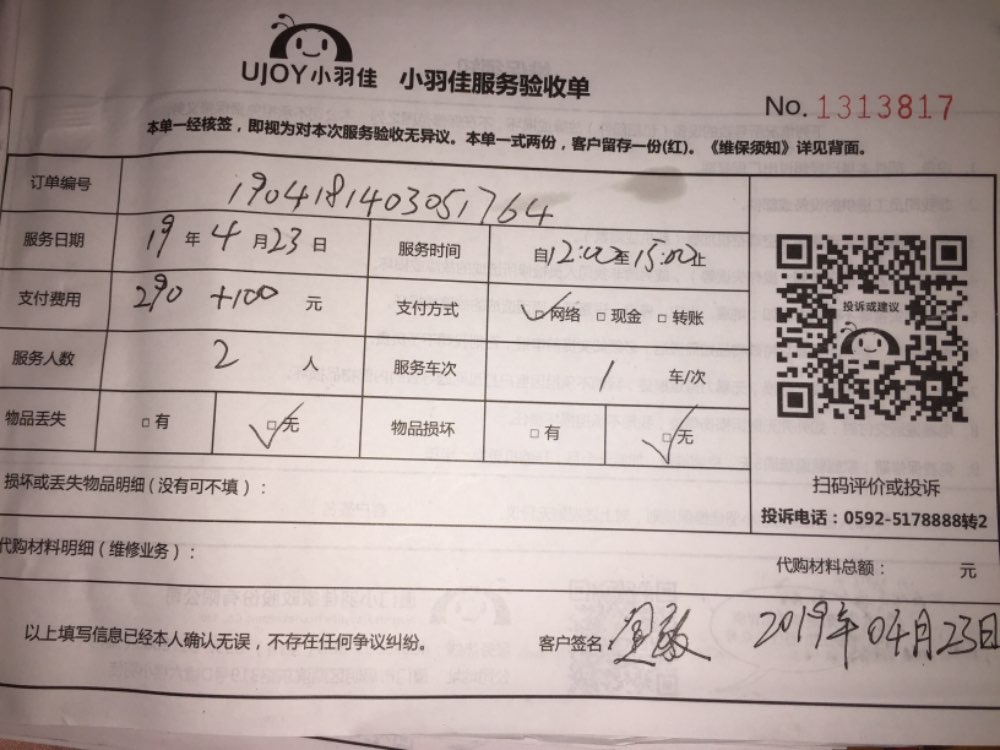 UJOY小羽佳 小羽佳服务验收单
No. 1313817
本单一经核签，即视为对本次服务验收无异议。本单一式两份，客户留存一份(红)。《维保须知》详见背面。
订单编号 1904181403051764
服务日期 19年4月23日 服务时间 自12:00至15:00止
支付费用 290+100 元 支付方式 □网络 □现金 □转账
服务人数 2 人 服务车次 1 车/次
物品丢失 □有 □无 物品损坏 □有 □无
投诉或建议
扫码评价或投诉
投诉电话：0592-5178888转2
损坏或丢失物品明细(没有可不填)：
代购材料明细(维修业务)：
代购材料总额： 元
以上填写信息已经本人确认无误，不存在任何争议纠纷。 客户签名： 2019年04月23日